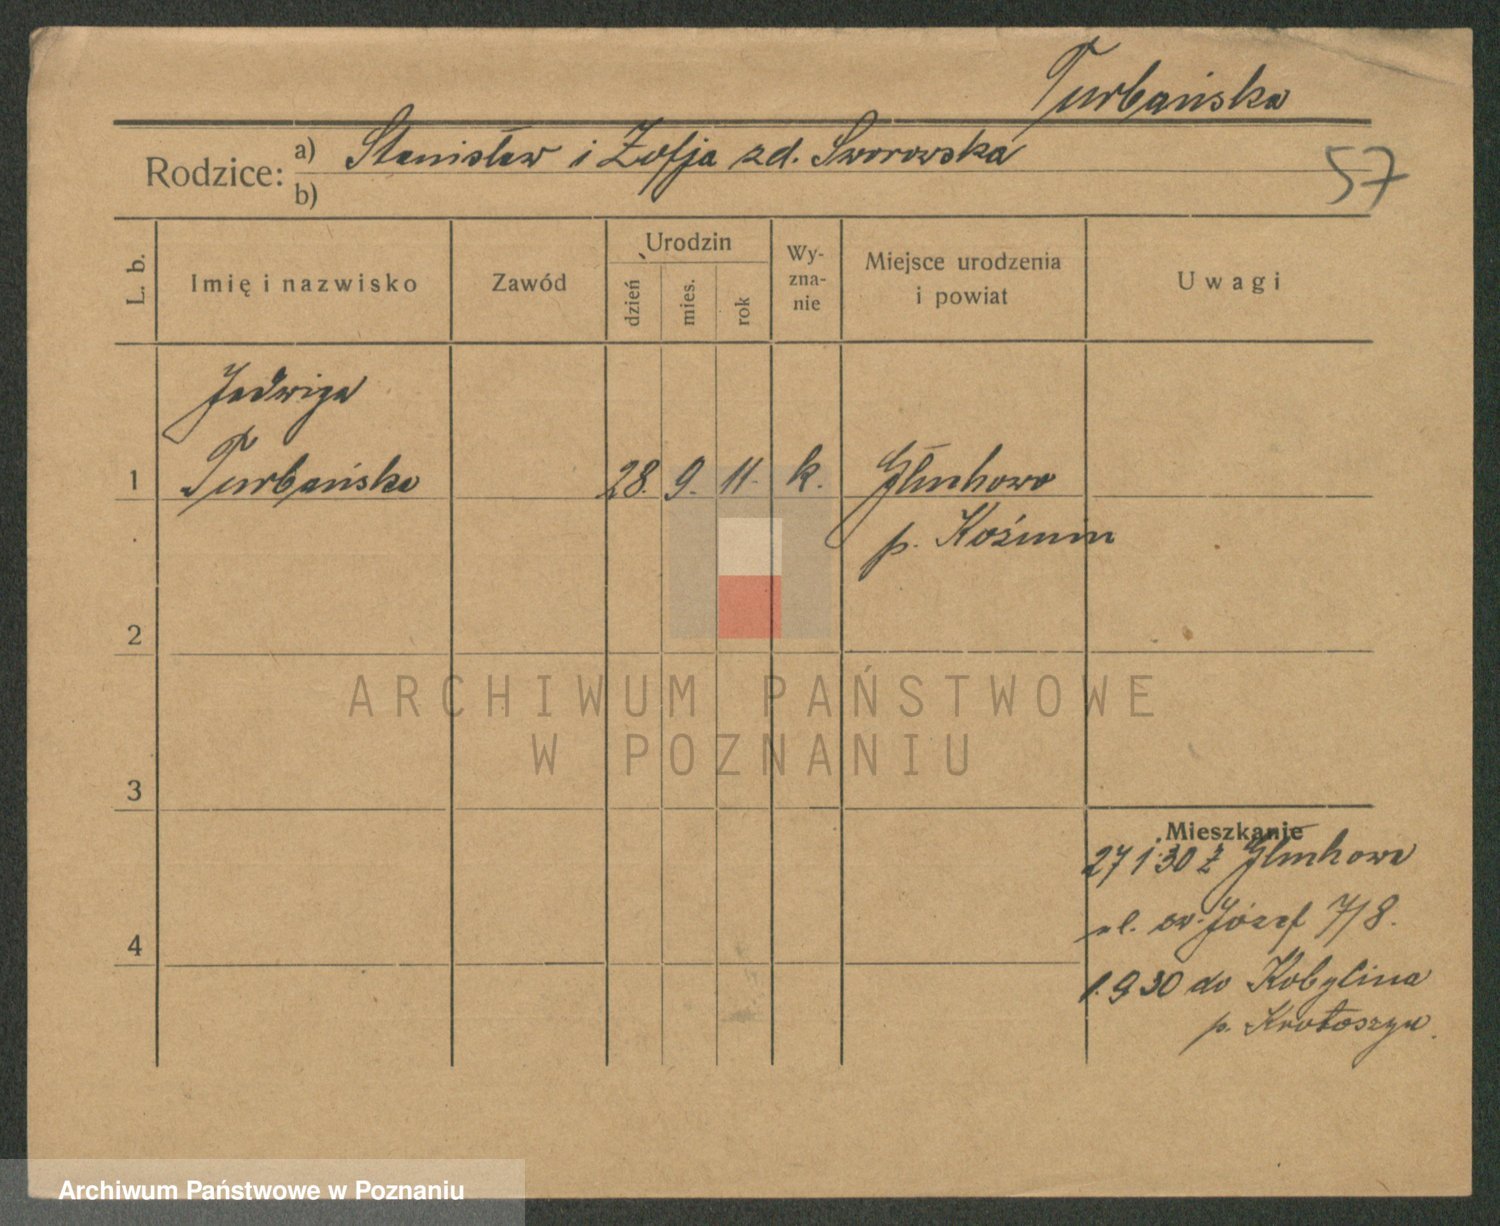 Turbańska
Rodzice: a) Stanisław i Zofja zd. Sworowska
b)
57
L. b.
Imię i nazwisko
Zawód
Urodzin
dzień
mies.
rok
Wy-
zna-
nie
Miejsce urodzenia
i powiat
Uwagi
Jadwiga
1 Turbańska 28. 9. 11. k. Głuchowo
p. Koźmin
2
ARCHIWUM PAŃSTWOWE
W POZNANIU
3
Mieszkanie
27 1 30 z Głuchowa
ul. św. Józef 7/8.
4
1. 9 30 do Kobylina
p. Krotoszyn.
Archiwum Państwowe w Poznaniu